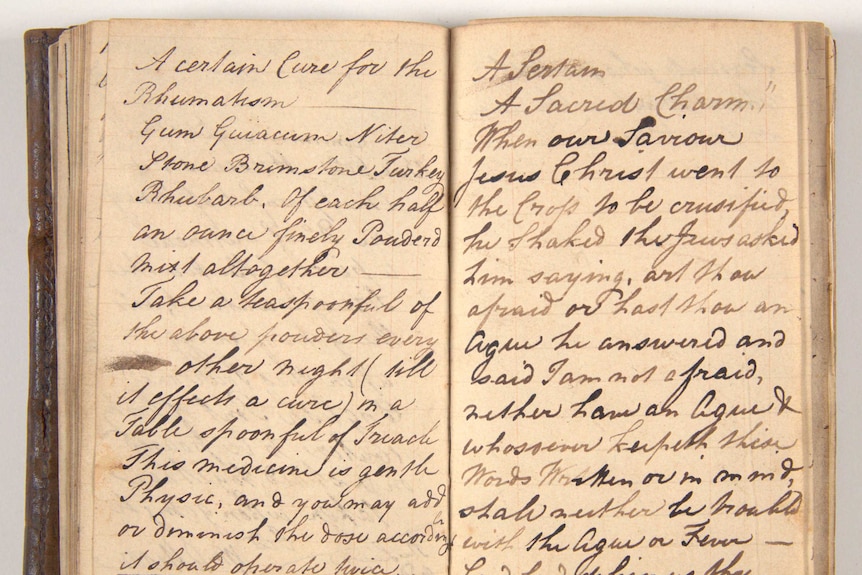 A certain Cure for the
Rhumatism
Gum Guiacum Niter
Stone Brimstone Turkey
Rhubarb. Of each half
an ounce finely Pouderd
mixt altogether
Take a teaspoonful of
the above pouders every
other night (till
it effects a cure) in a
Table spoonful of Treacle
This medicine is gentle
Physic, and you may add
or diminish the dose according
it should operate twice
A Sertain
A Sacred Charm"
When our Saviour
Jesus Christ went to
the Cross to be crusified,
he Shaked the Jews asked
him saying, art thou
afraid or hast thou an
Ague he answered and
said I am not afraid,
nether have an Ague &
whosoever keepeth these
Words Written or in mind,
shale neither be troubled
with the Ague or Fever